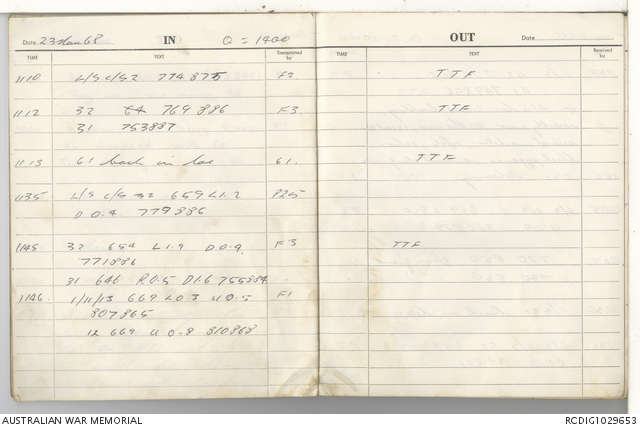 Date 23 Mar 68 IN Q = 1400
TIME TEXT Transmitted by
1110 L/S C/S 2 774 875 F2
1112 32 769 886 F3
31 753887
1113 61 back in loc 61.
1135 L/S C/S 659 L1.2 P25
D 0.4 779886
1145 32 654 L 1.9 D 0.9 F3
771886
31 646 R 0.5 D1.6 755884
1146 1/11/13 669 L0.3 U 0.5 F1
807865
12 669 U 0.8 810868
OUT Date
TIME TEXT Received by
TTF
TTF
TTF
TTF
AUSTRALIAN WAR MEMORIAL RCDIG1029653